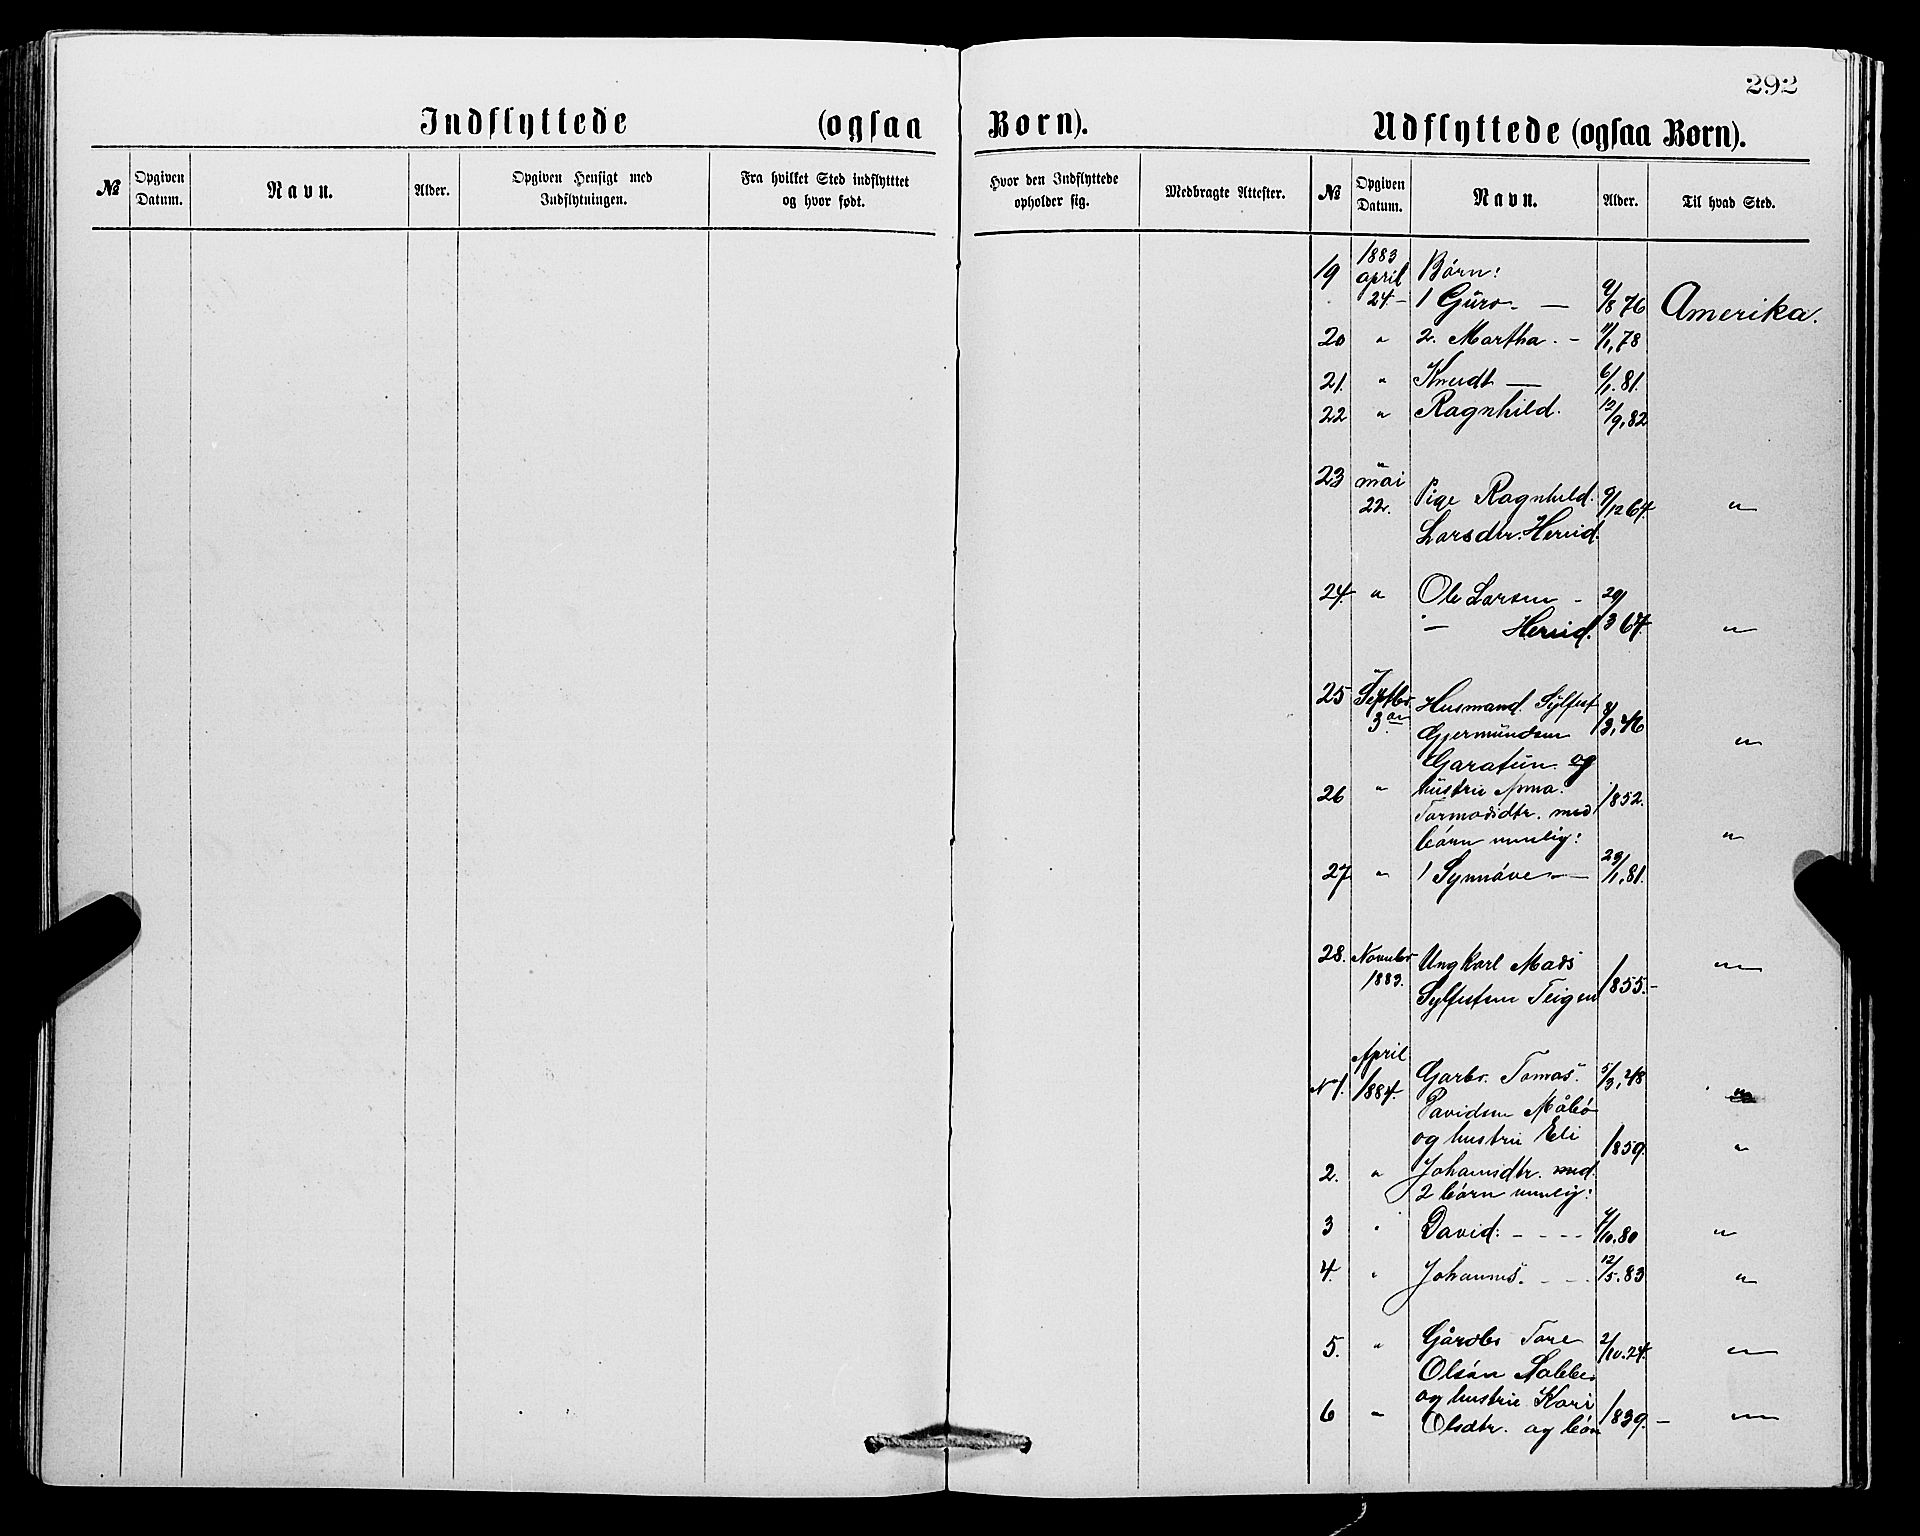 292
Indflyttede (ogsaa Børn).
Udflyttede (ogsaa Børn).
№ Opgiven Datum. Navn. Alder. Opgiven Hensigt med Indflytningen. Fra hvilket Sted indflytttet og hvor født. Hvor den Indflyttede opholder sig. Medbragte Attester. № Opgiven Datum. Navn. Alder. Til hvad Sted.
19 1883 april 24.– Børn:
1 Guro – 9/8 76 Amerika.
20 " 2. Martha. – 11/1, 78
21. " Knudt — 6/1. 81.
22 " Ragnhild. 12/9, 82
23 " mai 22. Pige Ragnhild. 9/12 64. "
Larsdtr. Hereid.
24. " Ole Larsen – 29/3 67. "
– Hereid.
25 Septbr. 3 Husmand. Sylfest 8/3, 46 "
Gjermundsen
Garatun. og
26 " hustru Anna. 1852. "
Tormodsdtr. med
børn nemlig:
27 " 1 Synnøve – 29/1, 81.
28. Novmbr 1883. Ungkarl Mads 1855.– "
Sylfestsen Teigen
N 1. April 1884. Garbr. Tomas. 5/3, 48 "
Davidsen Måbø
og hustru Eli 1859. "
2. " Johansdtr. med.
2 børn nemlig:
3 " David: – – – – 4/10, 80 "
4. " Johannes. – – – 12/5. 83 "
5. " Gårdbr Tore 2/10. 24. "
Olsøn
6 " og hustru Kari 1839. – "
Olsdtr. og børn